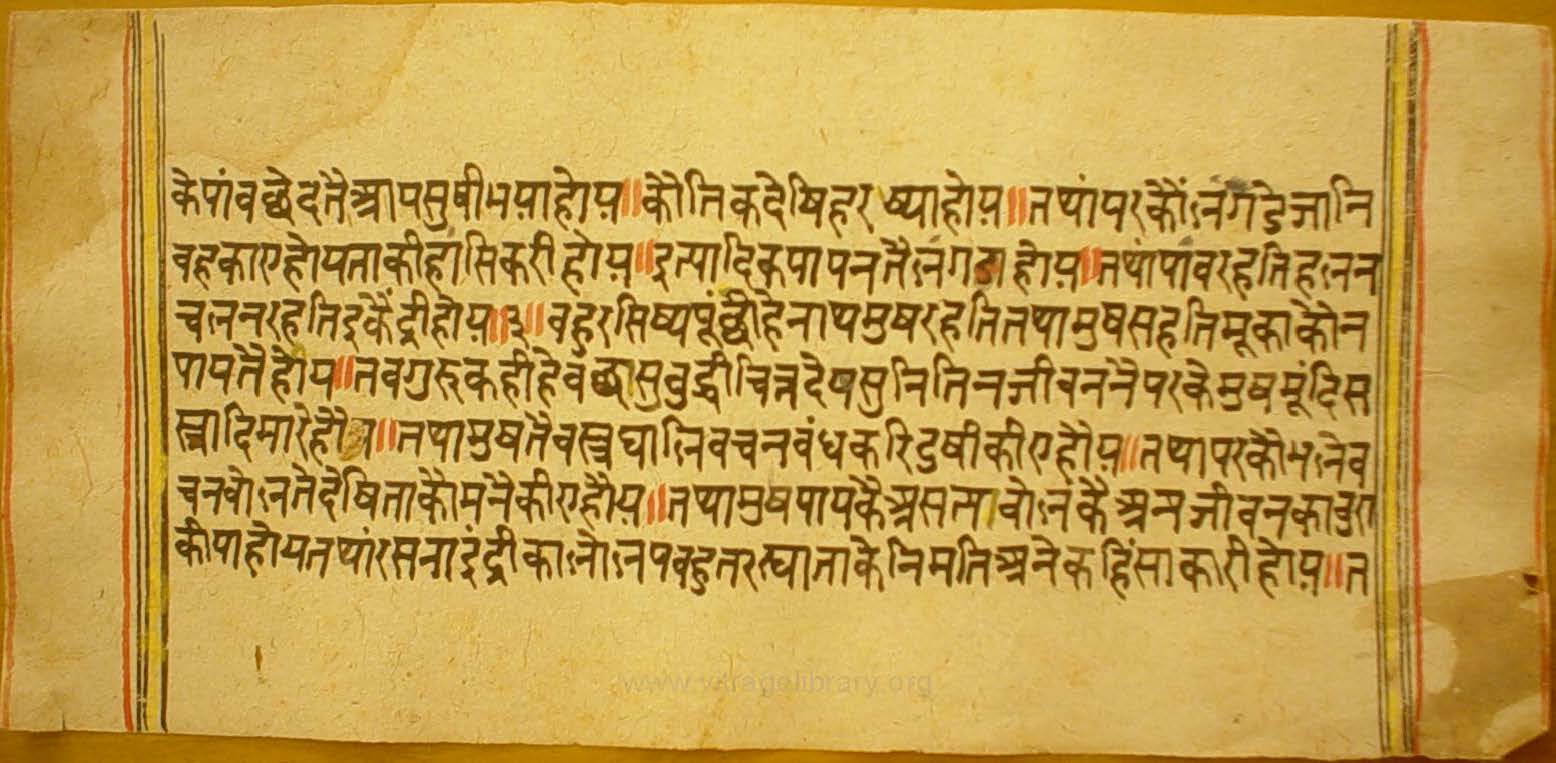 के पांव छेद तै आप सुषी भया होय॥ कौतिक देषि हरष्या होय॥ तथां पर कौं लंगडे जानि
वहकाए होय ताकी हांसि करी होय॥ इत्यादिक पापन तै लंगडा होय॥ तथां पांव रहति हलन
चलन रहति इकेंद्री होय॥३॥ वहुरि सिष्य पूंछी हे नाथ मुष रहति तथा मुष सहति मूका कौन
पाप तै होय॥ तव गुरु कही हे वछ सुवुद्धी चित्त दे सुनि तिन जीवननै पर के मुष मूंदि स
स्त्रादि मारे होय॥ तथा मुष तै वस्त्र घालि वचन वंध करि दुषी कीए होय॥ तथा पर कौ भले व
चन वोलते देषि ताकौ मनै कीए होय॥ तथा मुष पाय कै असत्य वोलं कै अन जीवन का वुरा
कीया होय तथां रसना इंद्री का लोलप वहुत रह्या ताके निमति अनेक हिंसा कारी होय॥ त
www.vitragelibrary.org